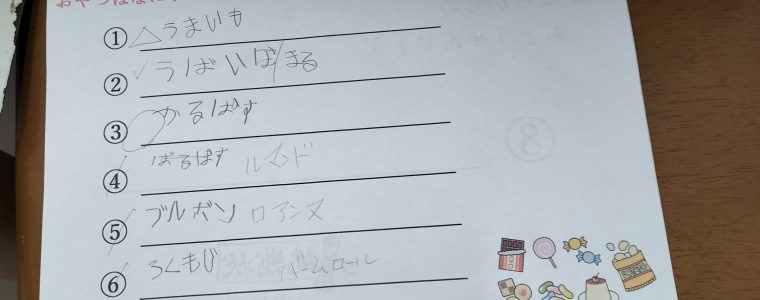 ① △うまいも
② ✓うばいぼ/まる
③ かるぱす
④ ばるぱす ルマンド
⑤ ブルボン ロアンヌ
⑥ ろくもじ バームロール
⑧